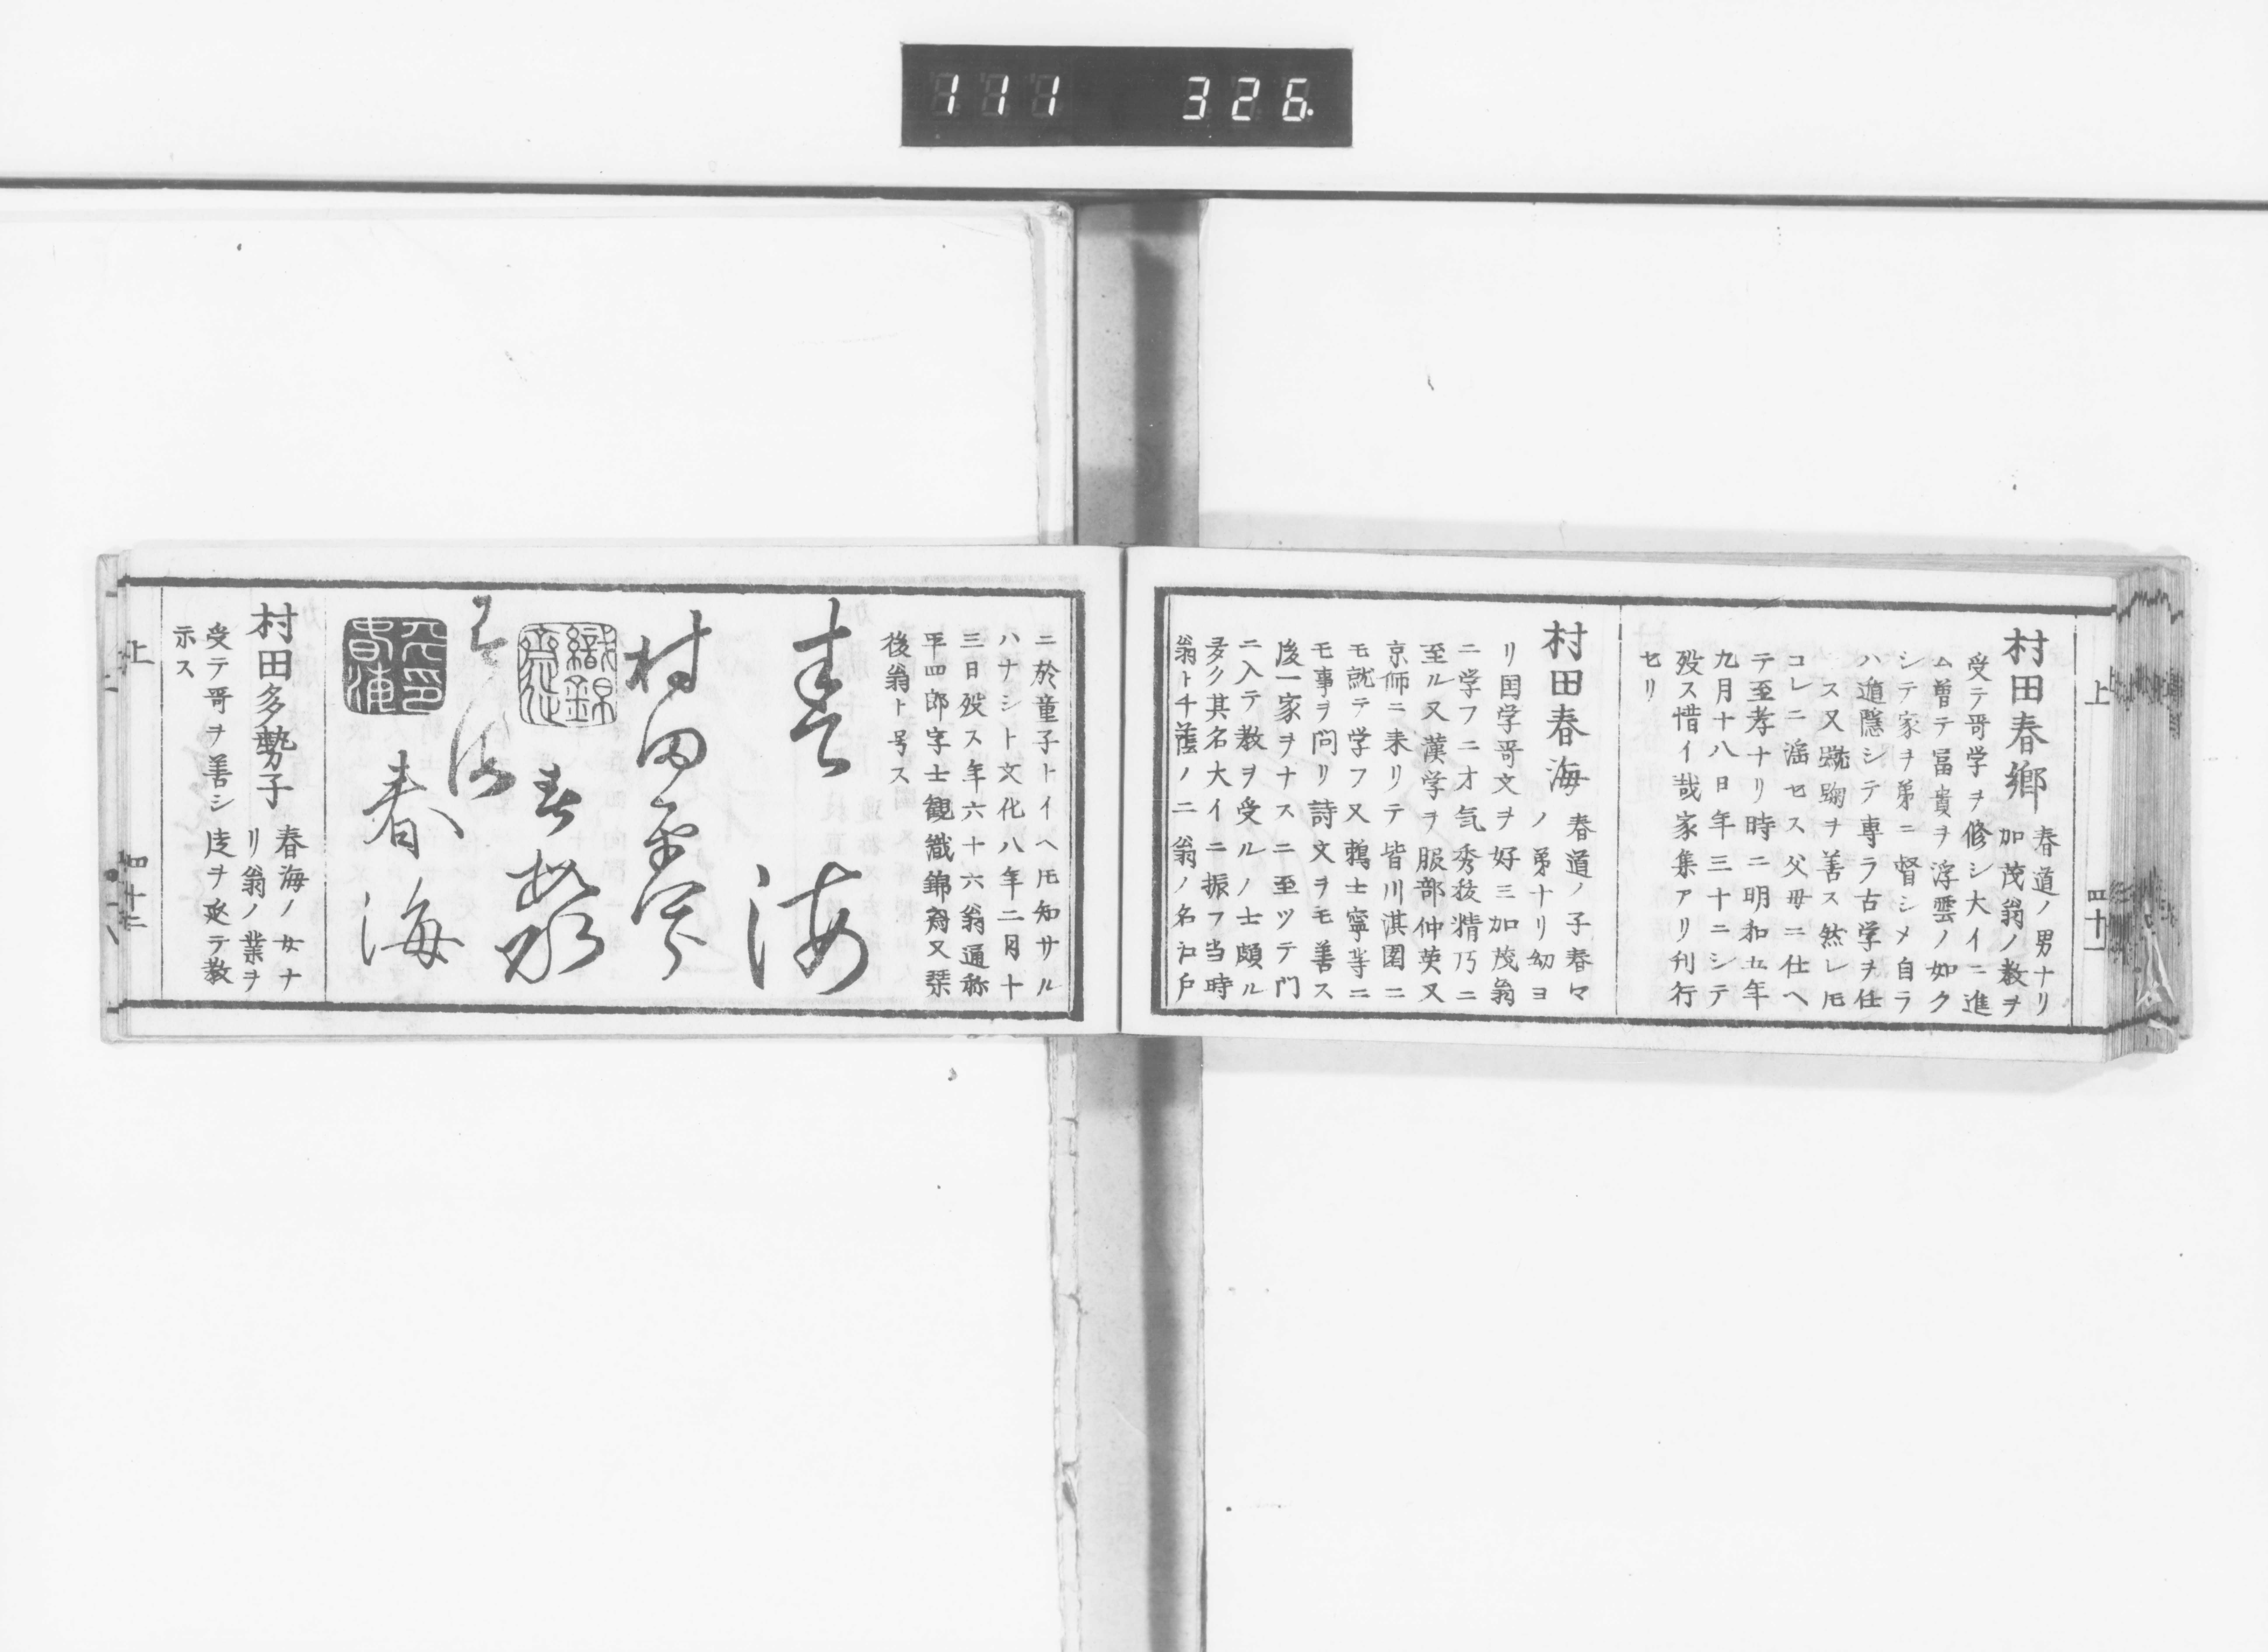 111 326.
上
四十一
村田春郷 春道ノ男ナリ
加茂翁ノ教ヲ
受テ哥学ヲ修シ大イニ進
ム曽テ冨貴ヲ浮雲ノ如ク
シテ家ヲ弟ニ督シメ自ラ
ハ遁隠シテ専ラ古学ヲ任
ス又蹴鞠ヲ善ス然レ𪜈
コレニ滛セス父母ニ仕ヘ
テ至孝ナリ時ニ明和五年
九月十八日年三十ニシテ
歿ス惜イ哉家集アリ刊行
セリ
村田春海 春道ノ子春々
ノ弟ナリ幼ヨ
リ国学哥文ヲ好ミ加茂翁
ニ学フニ才気秀抜精乃ニ
至ル又漢学ヲ服部仲英又
京師ニ来リテ皆川淇園ニ
モ就テ学フ又鵜士寧等ニ
モ事ヲ問リ詩文ヲモ善ス
後一家ヲナスニ至ツテ門
ニ入テ教ヲ受ルノ士頗ル
多ク其名大イニ振フ当時
翁ト千蔭ノニ翁ノ名江戸
ニ於童子トイヘ𪜈知サル
ハナシト文化八年二月十
三日歿ス年六十六翁通称
平四郎字士観織錦斎又琴
後翁ト号ス
春海
村田平
織錦斎
春海
春海
村田多勢子 春海ノ女ナ
リ翁ノ業ヲ
受テ哥ヲ善シ後ヲ承テ教
示ス
上
四十二